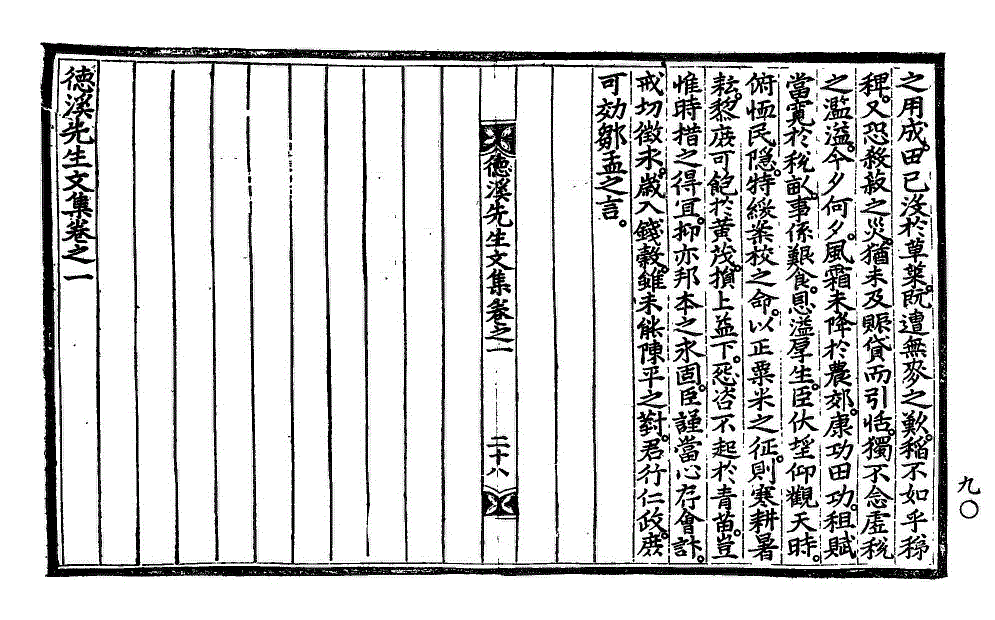 之用成。田已沒於草萊。旣遭無麥之歎。稻不如乎稊
稗。又恐殺菽之災。猶未及賑貸而引恬。獨不念虛稅
之濫溢。今夕何夕。風霜未降於農郊。康功田功。租賦
當寬於稅畝。事係艱食。恩溢厚生。臣伏望仰觀天時。
俯恤民隱。特綏桨校之命。以正粟米之征。則寒耕暑
耘。黎庶可飽於黃茂。損上益下。怨咨不起於靑苗。豈
惟時措之得宜。抑亦邦本之永固。臣謹當心存會計。
戒切徵求。歲入錢穀。雖未能陳平之對。君行仁政。庶
可效鄒孟之言。
德溪先生文集卷之一
二十八
德溪先生文集卷之一
九〇